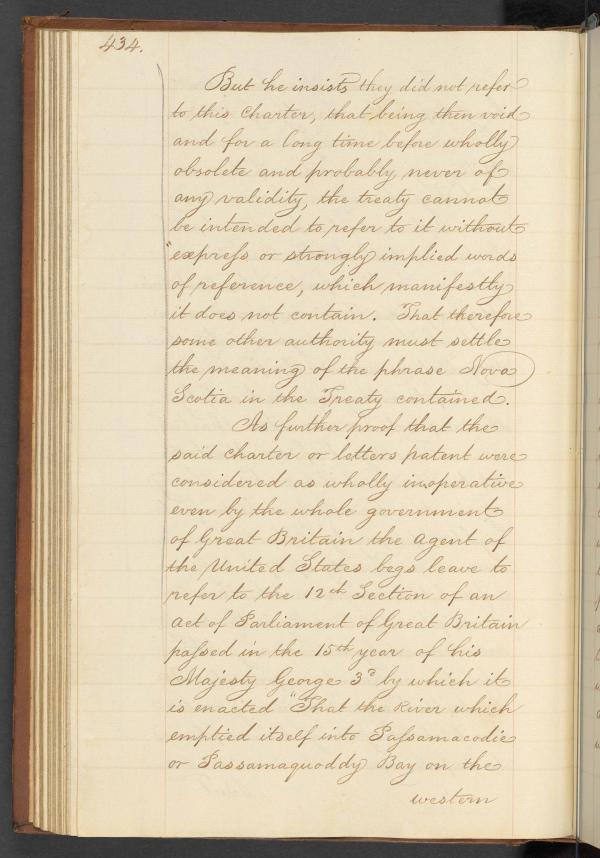 434.
But he insists they did not refer
to this Charter, that being then void
and for a long time before wholly
obsolete and probably never of
any validity, the treaty cannot
be intended to refer to it without
"express or strongly implied words
of reference, which manifestly
it does not contain. That therefore
some other authority must settle
the meaning of the phrase Nova
Scotia in the Treaty contained.
As further proof that the
said charter or letters patent were
considered as wholly inoperative
even by the whole government
of Great Britain the agent of
the United States begs leave to
refer to the 12th Section of an
act of Parliament of Great Britain
passed in the 15th year of his
Majesty George 3d by which it
is enacted "That the River which
emptied itself into Passamacodie
or Passamaquoddy Bay on the
western